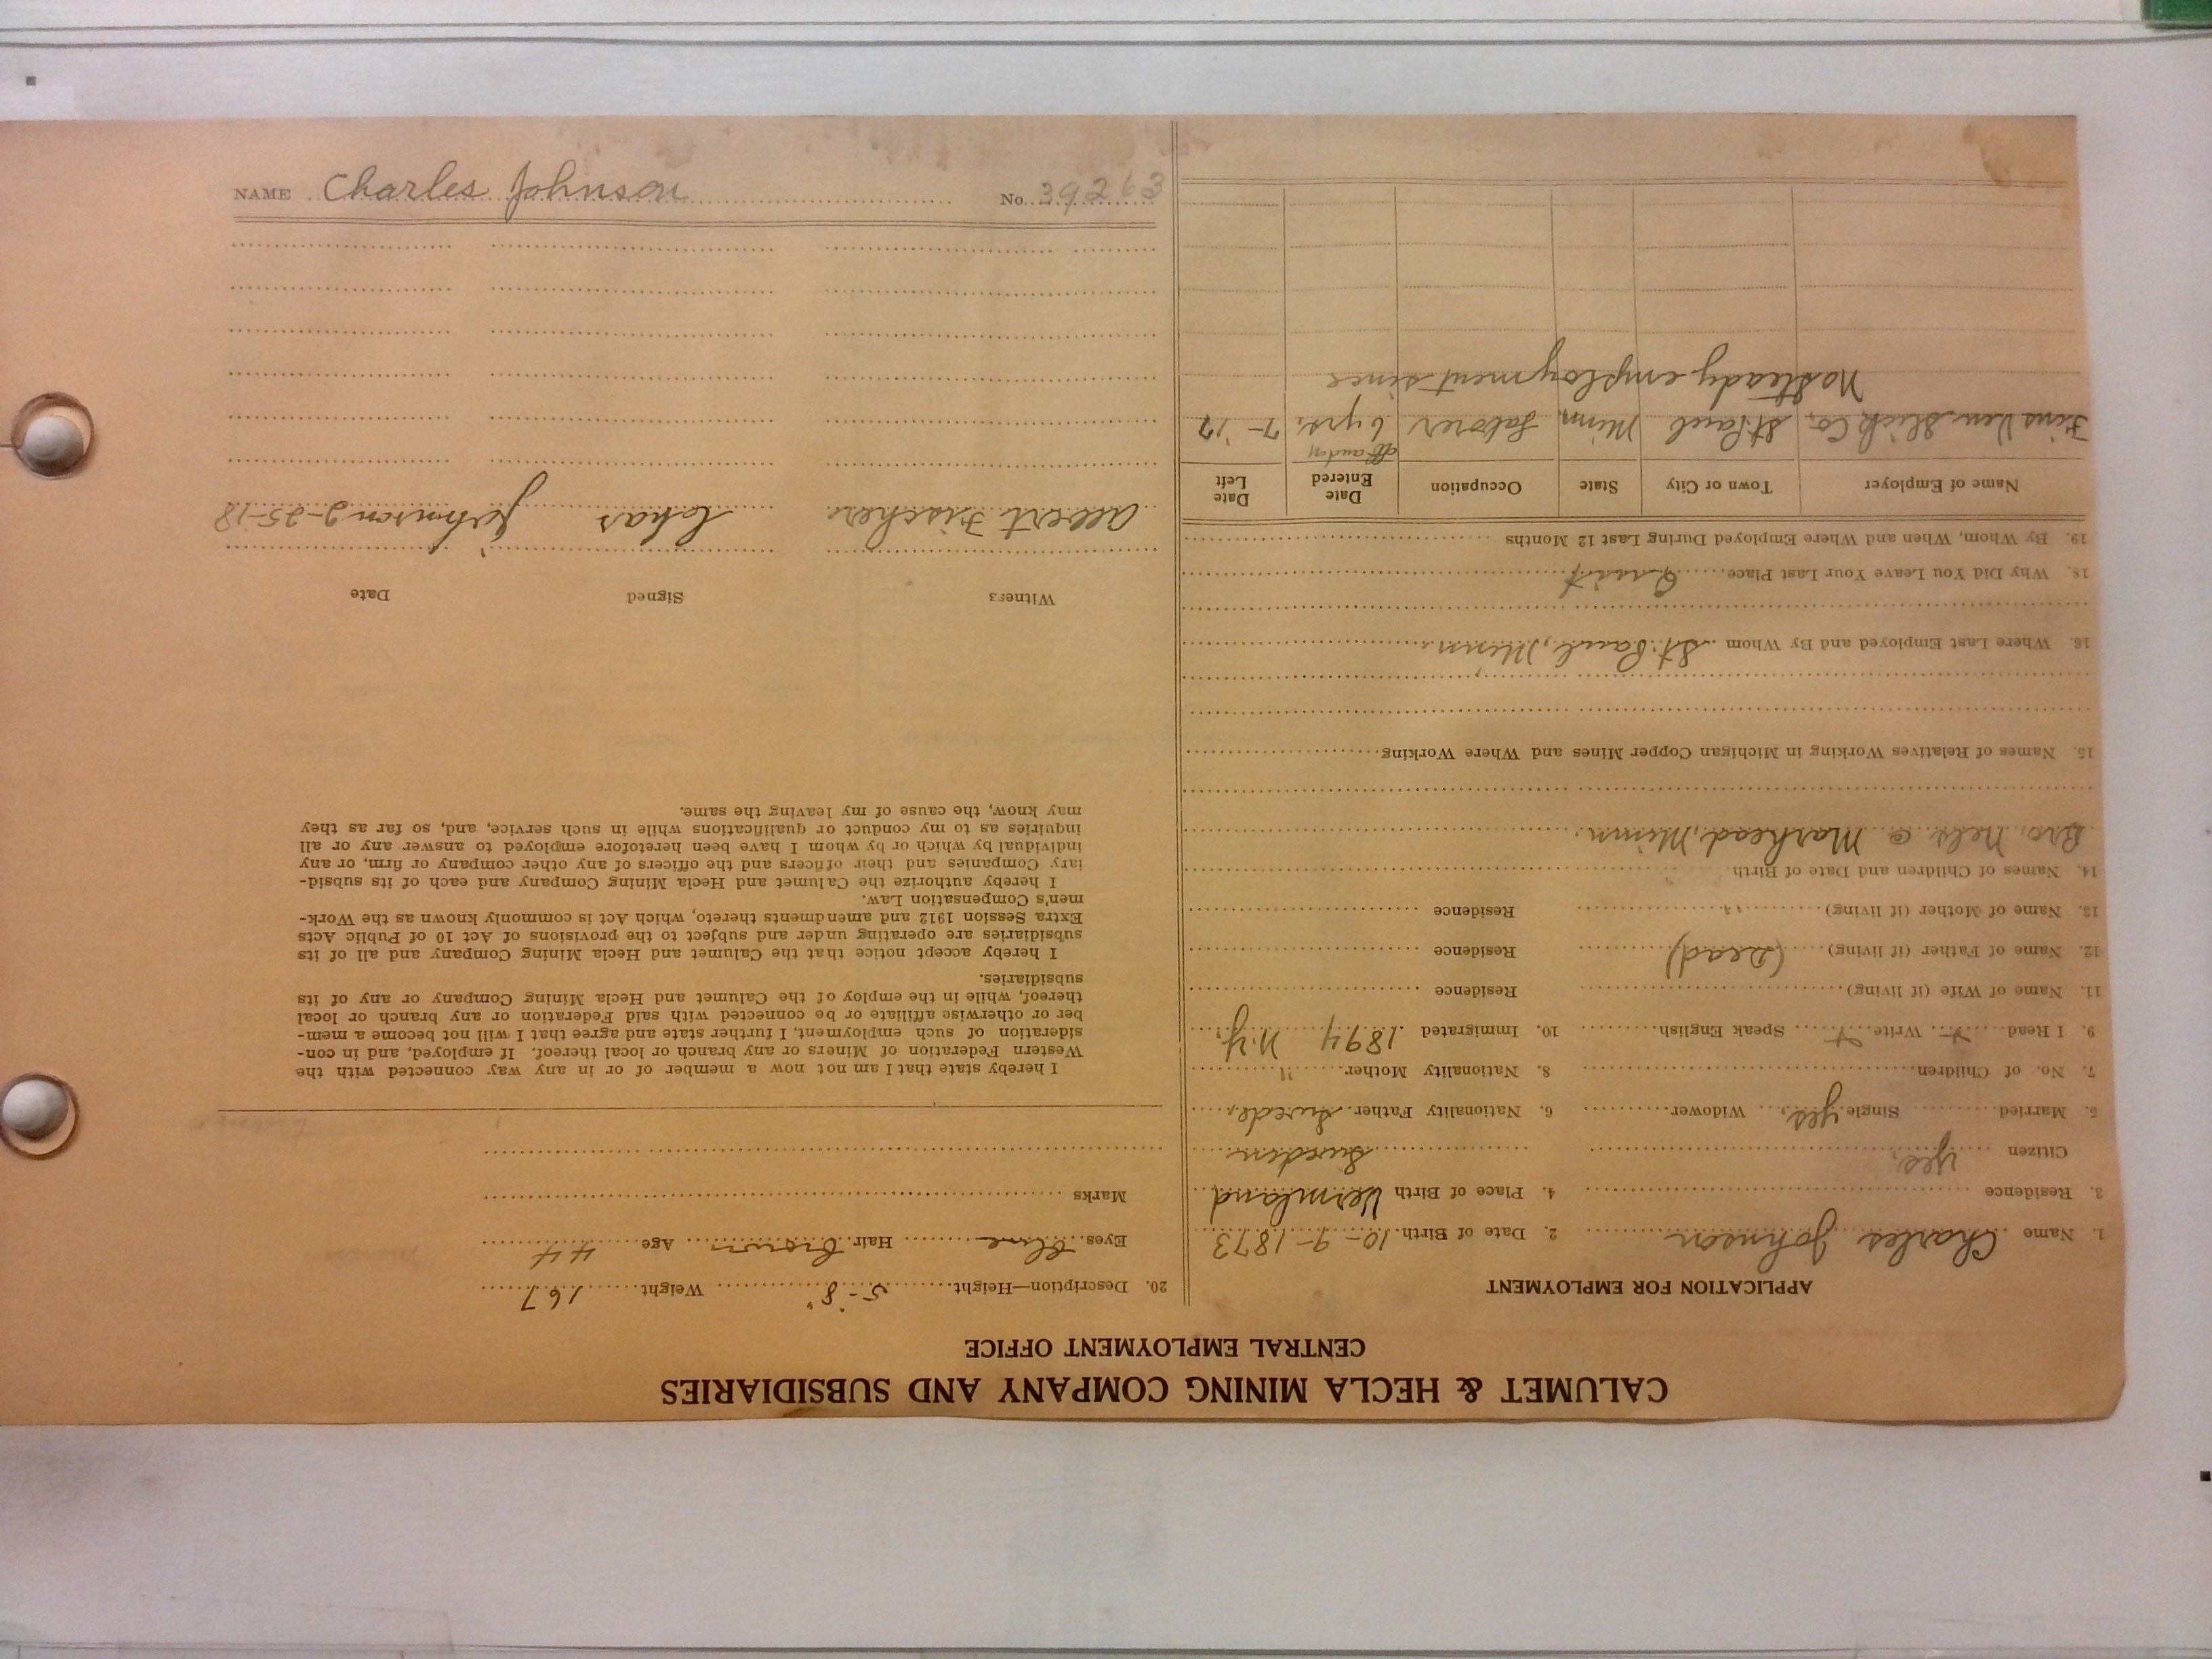 CALUMET & HECLA MINING COMPANY AND SUBSIDIARIES
CENTRAL EMPLOYMENT OFFICE
APPLICATION FOR EMPLOYMENT
1. Name Charles Johnson 2. Date of Birth 10-9-1873
3. Residence 4. Place of Birth Vermland
Citizen yes, Sweden
5. Married Single yes, Widower 6. Nationality Father Swede,
7. No. of Children 8. Nationality Mother "
9. I Read + Write + Speak English 10. Immigrated 1894 N.Y,
11. Name of Wife (if living) Residence
12. Name of Father (if living) (Dead) Residence
13. Name of Mother (if living) " Residence
14. Names of Children and Date of Birth
Bro. Nels @ Morhead, Minn.
15. Names of Relatives Working in Michigan Copper Mines and Where Working
16. Where Last Employed and By Whom St. Paul, Minn.
18. Why Did You Leave Your Last Place Quit
19. By Whom, When and Where Employed During Last 12 Months
Name of Employer Town or City State Occupation Date Entered Date Left
off and on
Co, St. Paul Minn, Laborer 6 yrs. 7-'17
No steady employment since
20. Description—Height 5'-8" Weight 167
Eyes Blue Hair Brown Age 44
Marks
I hereby state that I am not now a member of or in any way connected with the
Western Federation of Miners or any branch or local thereof. If employed, and in con-
sideration of such employment, I further state and agree that I will not become a mem-
ber or otherwise affiliate or be connected with said Federation or any branch or local
thereof, while in the employ of the Calumet and Hecla Mining Company or any of its
subsidiaries.
I hereby accept notice that the Calumet and Hecla Mining Company and all of its
subsidiaries are operating under and subject to the provisions of Act 10 of Public Acts
Extra Session 1912 and amendments thereto, which Act is commonly known as the Work-
men's Compensation Law.
I hereby authorize the Calumet and Hecla Mining Company and each of its subsid-
iary Companies and their officers and the officers of any other company or firm, or any
individual by which or by whom I have been heretofore employed to answer any or all
inquiries as to my conduct or qualifications while in such service, and, so far as they
may know, the cause of my leaving the same.
Witness Signed Date
Albert Fischer Chas Johnson 2-25-18
NAME Charles Johnson No. 39263